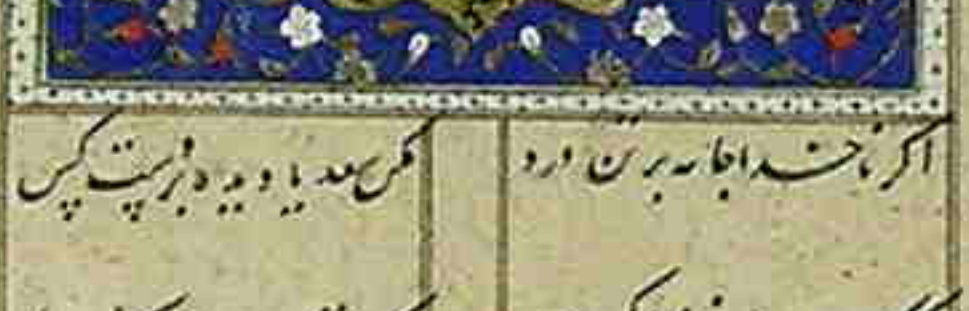 اگر ناخدا جامه بر تن درد مکن سعدیا دیده بر دست کس